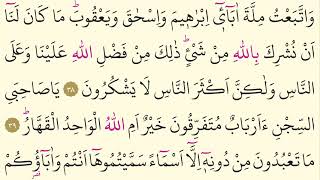 وَاتَّبَعْتُ مِلَّةَ اٰبَآءِيْٓ اِبْرٰهِيْمَ وَاِسْحٰقَ وَيَعْقُوْبَ ؕ مَا كَانَ لَنَاۤ
اَنْ نُّشْرِكَ بِاللّٰهِ مِنْ شَیْءٍ ؕ ذٰلِكَ مِنْ فَضْلِ اللّٰهِ عَلَيْنَا وَعَلَی
النَّاسِ وَلٰكِنَّ اَكْثَرَ النَّاسِ لَا يَشْكُرُوْنَ ﴿٣٨﴾ يٰصَاحِبَيِ
السِّجْنِ ءَاَرْبَابٌ مُّتَفَرِّقُوْنَ خَيْرٌ اَمِ اللّٰهُ الْوَاحِدُ الْقَهَّارُ ؕ ﴿٣٩﴾
مَا تَعْبُدُوْنَ مِنْ دُوْنِهٖۤ اِلَّاۤ اَسْمَآءً سَمَّيْتُمُوْهَاۤ اَنْتُمْ وَاٰبَآؤُكُمْ